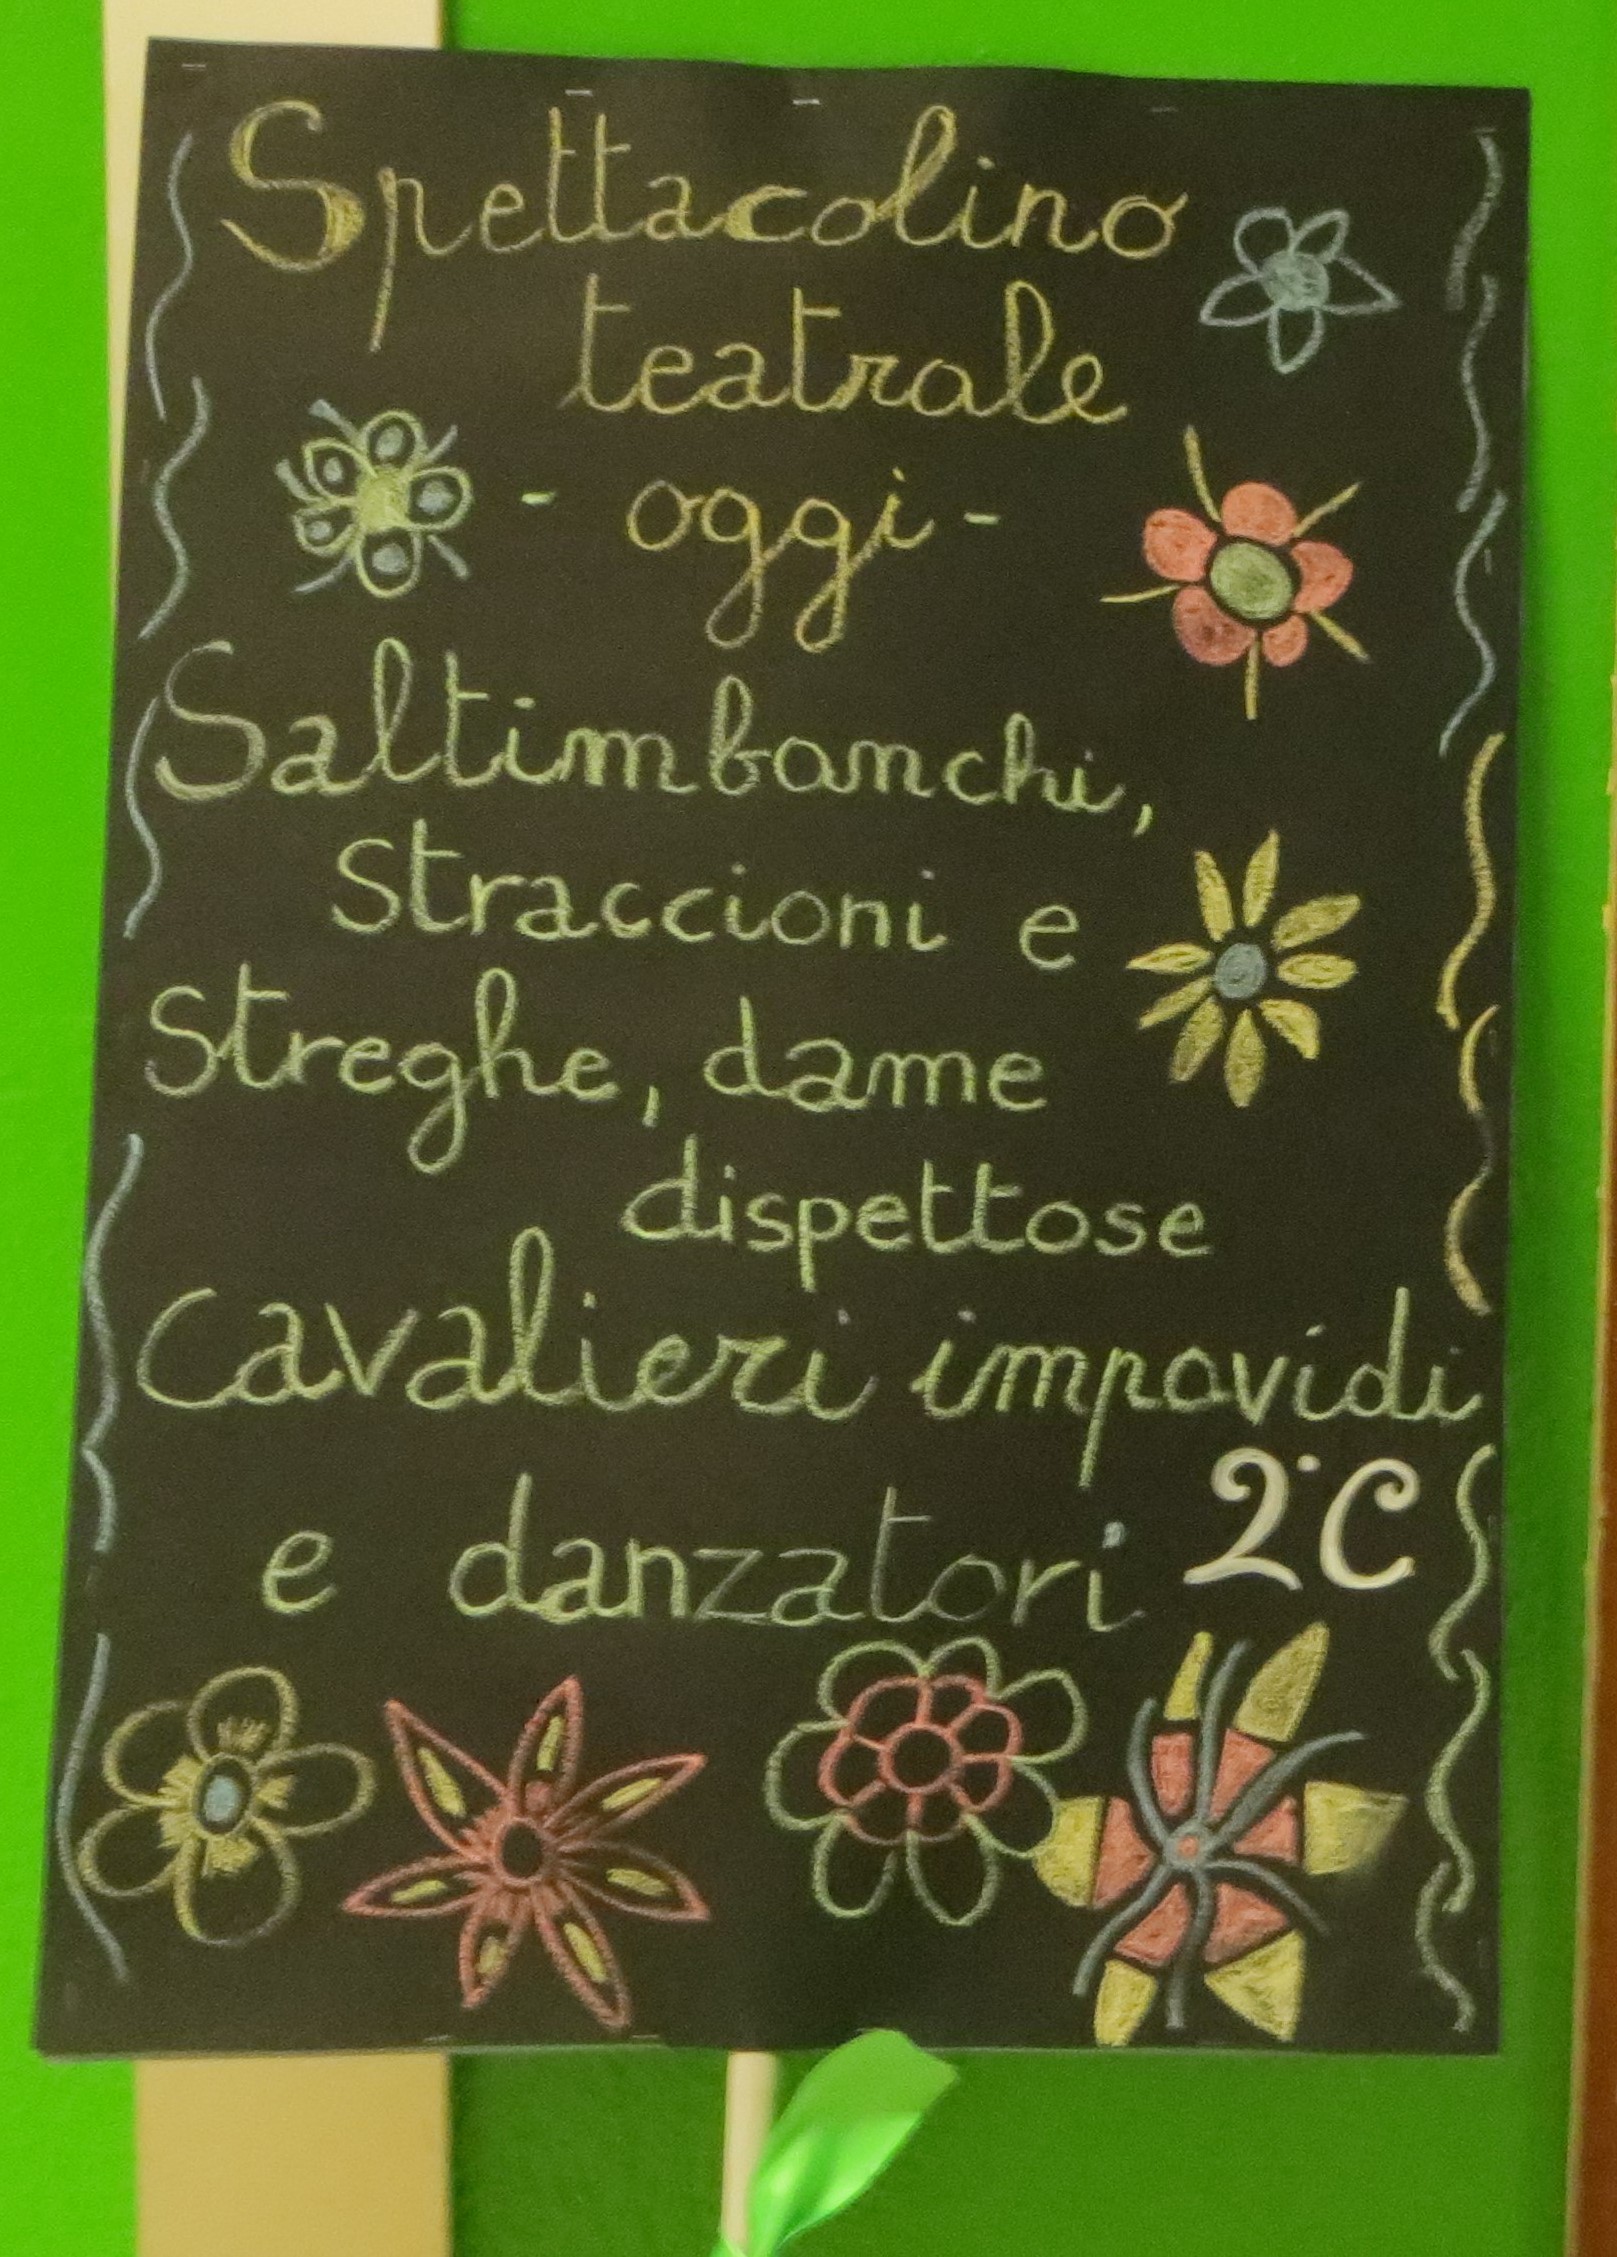 Spettacolino
teatrale
- oggi -
Saltimbanchi,
straccioni e
streghe, dame
dispettose
Cavalieri impavidi
e danzatori 2°C